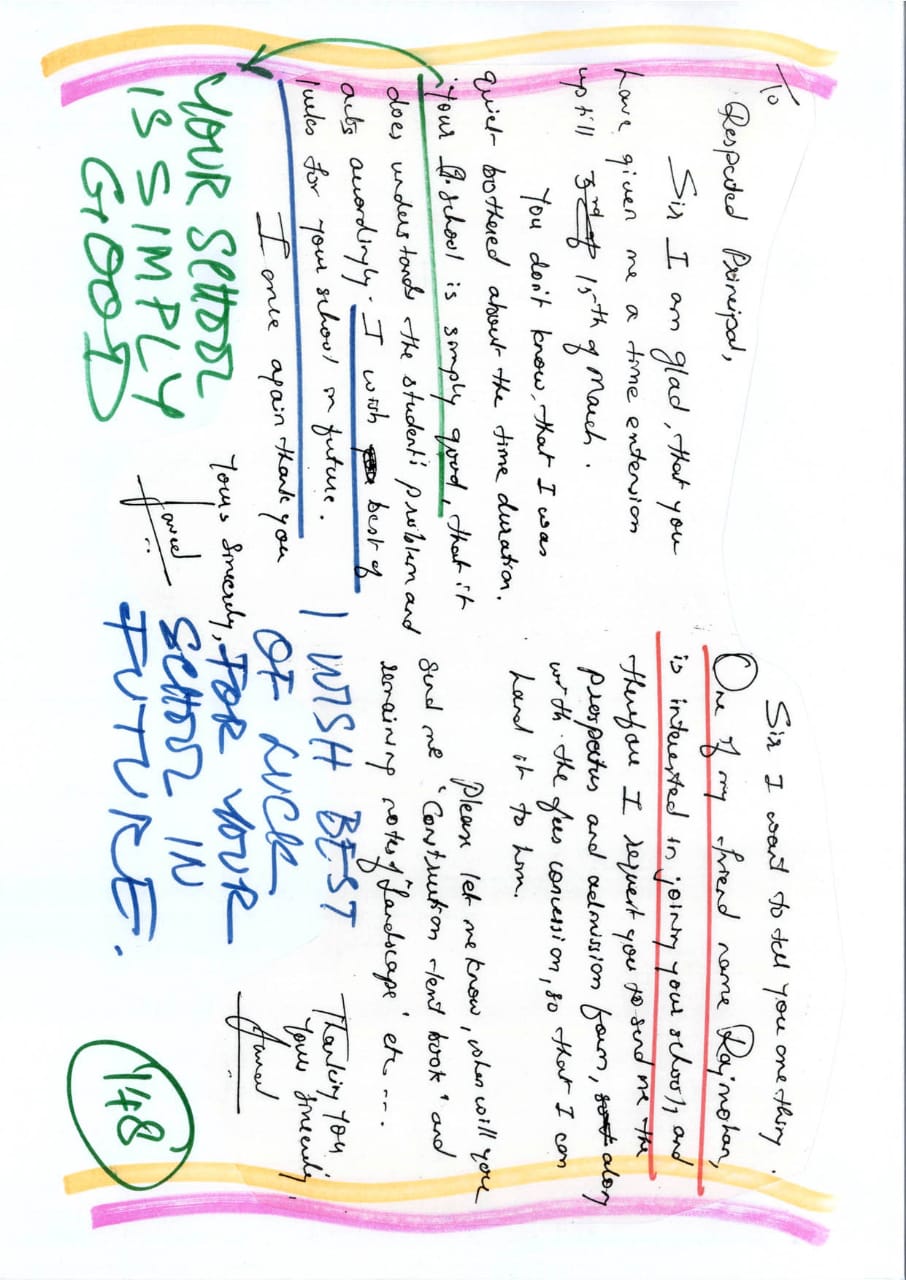 To
Respected Principal,
Sir I am glad, that you
have given me a time extension
up till 15th of March.
You don't know, that I was
quiet bothered about the time duration.
Your school is simply good, that it
does understands the student's problem and
acts accordingly. I wish best of
lucks for your school in future.
I once again thank you
Yours Sincerely,
YOUR SCHOOL
IS SIMPLY
GOOD
Sir I want to tell you one thing.
One of my friend name Rajmohan,
is interested in joining your school, and
therefore I request you to send me the
prospectus and admission form, along
with the fees concession, so that I can
hand it to him.
Please let me know, when will you
send me 'Construction text book' and
remaining notes of 'Landscape' etc...
Thanking you,
Yours sincerely,
I WISH BEST
OF LUCK
FOR YOUR
SCHOOL IN
FUTURE.
148